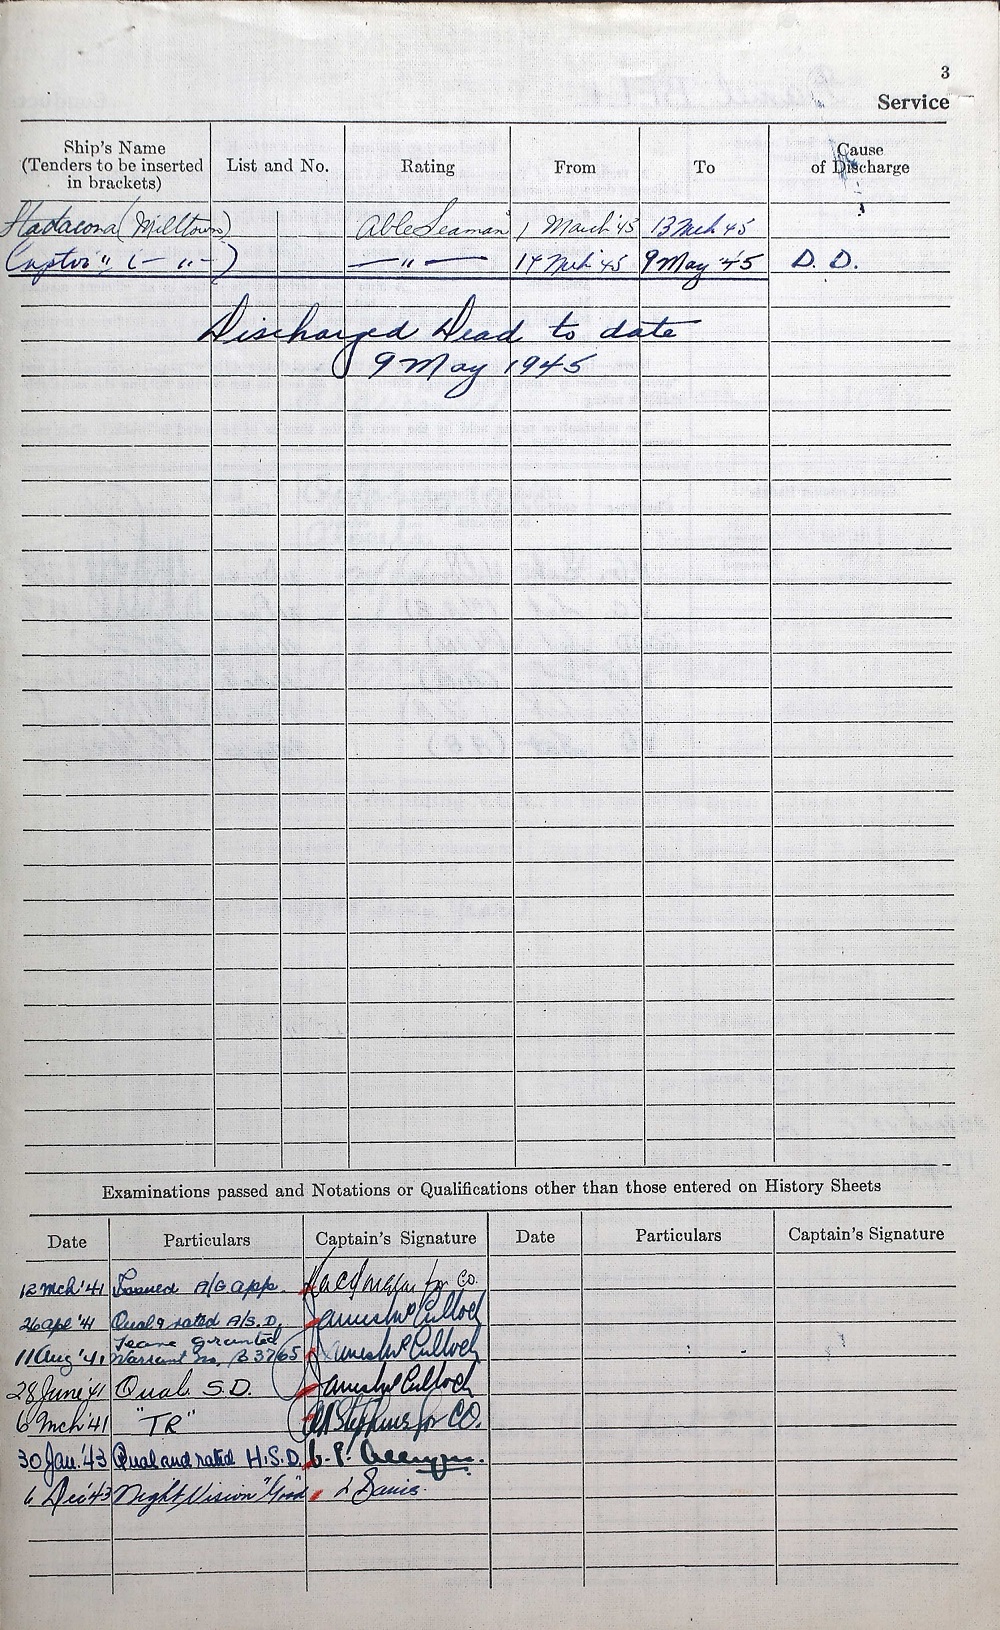 3
Service
Ship's Name
(Tenders to be inserted
in brackets)
List and No.
Rating
From
To
Cause
of Discharge
Stadacona (Milltown) Able Seaman 1 March '45 13 Mch 45
Captor " (- " -) — " — 14 Mch '45 9 May '45 D. D.
Discharged Dead to date
9 May 1945
Examinations passed and Notations or Qualifications other than those entered on History Sheets
Date Particulars Captain's Signature Date Particulars Captain's Signature
12 Mch '41 Issued A/G app. for CO.
26 Apl '41 Qual & rated A/S.D. James McCulloch
11 Aug '41 granted
Warrant No. B 3765 James McCulloch
28 June '41 Qual. S.D. James McCulloch
6 Mch '41 "TR" Stephens for CO.
30 Jan. '43 Qual and rated H.S.D.
6 Dec '43 Night Vision "Good"